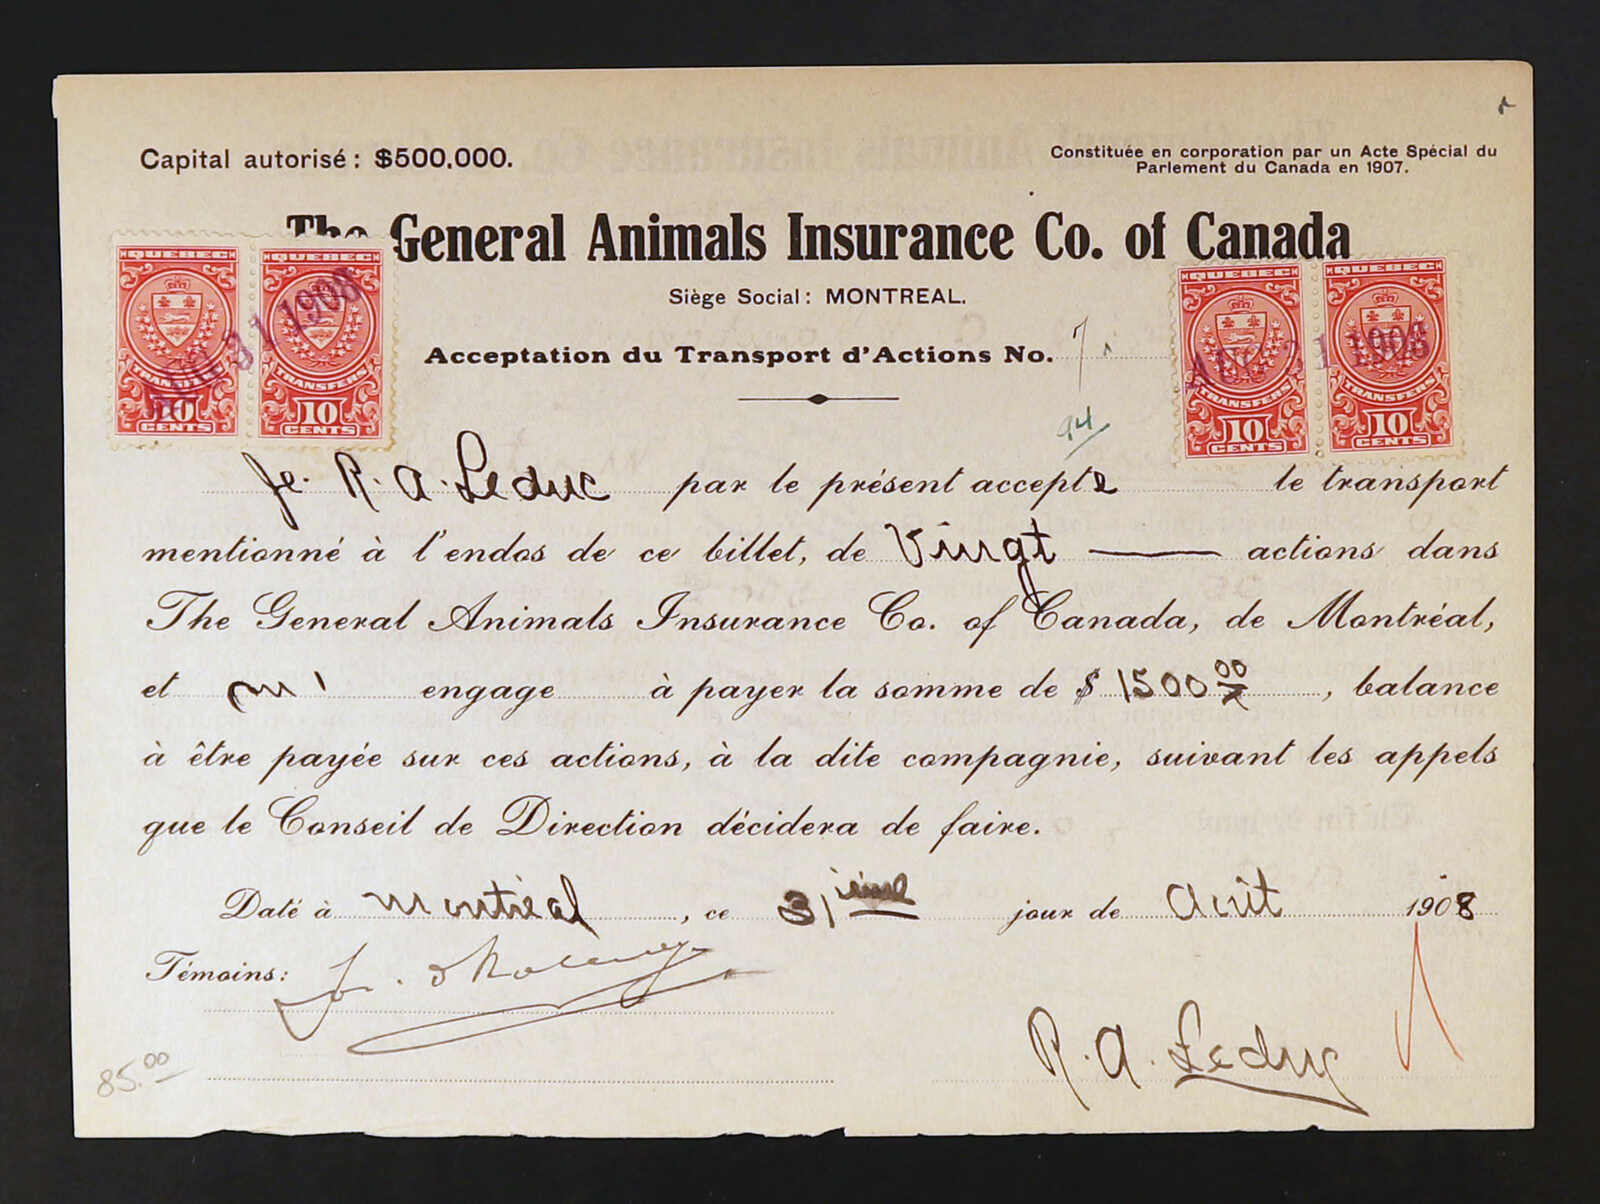 Capital autorisé: $500.000.
Constituée en corporation par un Acte Spécial du
Parlement du Canada en 1907.
The General Animals Insurance Co. of Canada
Siège Social: MONTREAL.
Acceptation du Transport d'Actions No. 7
94
QUEBEC QUEBEC
TRANSFERS TRANSFERS
10 10
CENTS CENTS
31 1908
QUEBEC QUEBEC
TRANSFERS TRANSFERS
10 10
CENTS CENTS
AUG 31 1908
Je. R. A. Leduc par le présent accepte le transport
mentionné à l'endos de ce billet, de Vingt actions dans
The General Animals Insurance Co. of Canada, de Montréal,
et m' engage à payer la somme de $ 1500 00, balance
à être payée sur ces actions, à la dite compagnie, suivant les appels
que le Conseil de Direction décidera de faire.
Daté à Montréal, ce 31ième jour de Août 1908
Témoins:
R. A. Leduc
85.00